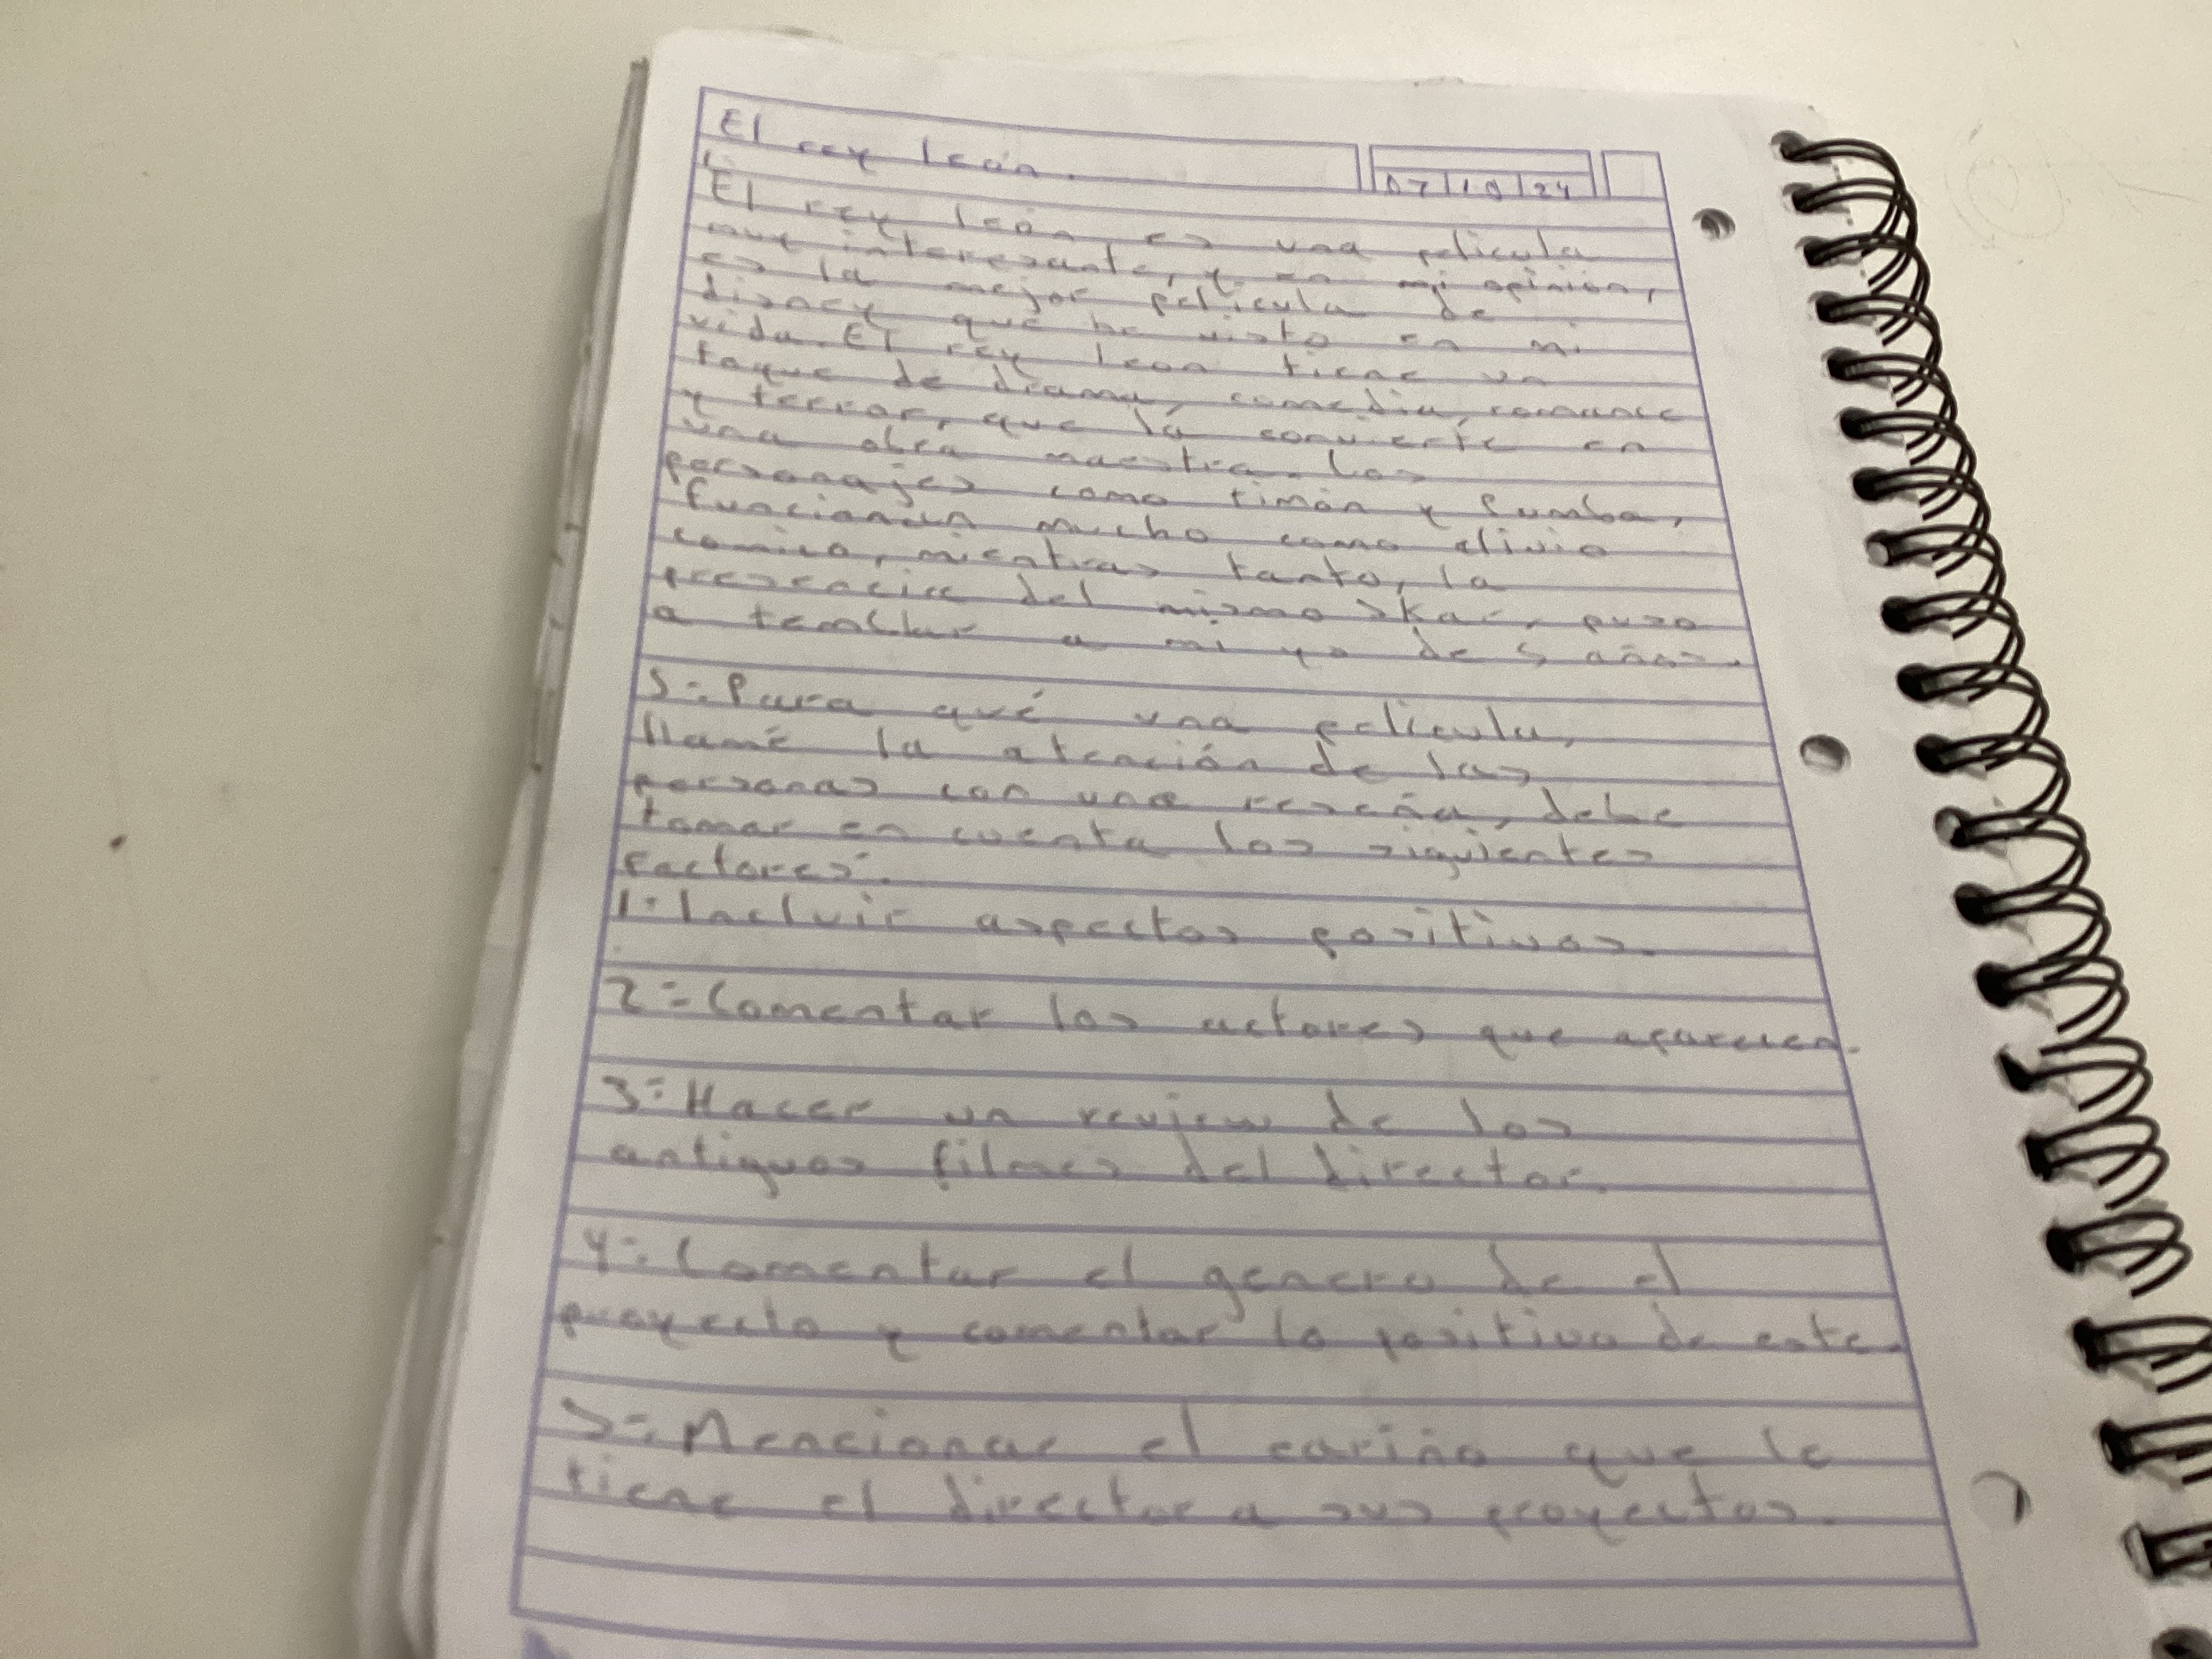 El rey león.
07/10/24
1-
El rey león es una pelicula
muy interesante, y en mi opinión,
es la mejor pelicula de
disney que he visto en mi
vida. El rey leon tiene un
toque de drama, comedia, romance
y terror, que la convierte en
una obra maestra. Los
personajes como timón y Pumba,
funcionan mucho como alivio
comico, mientras tanto, la
presencia del mismo Skar, puso
a temblar a mi yo de 5 años.
5-. Para qué una pelicula,
llamé la atención de las
personas con una reseña, debe
tomar en cuenta los siguientes
factores:
1-. Incluir aspectos positivos.
2-. Comentar los actores que aparecen.
3-. Hacer un review de los
antiguos filmes del director.
4-. Comentar el genero de el
proyecto y comentar lo positivo de este.
5-. Mencionar el cariño que le
tiene el director a sus proyectos.